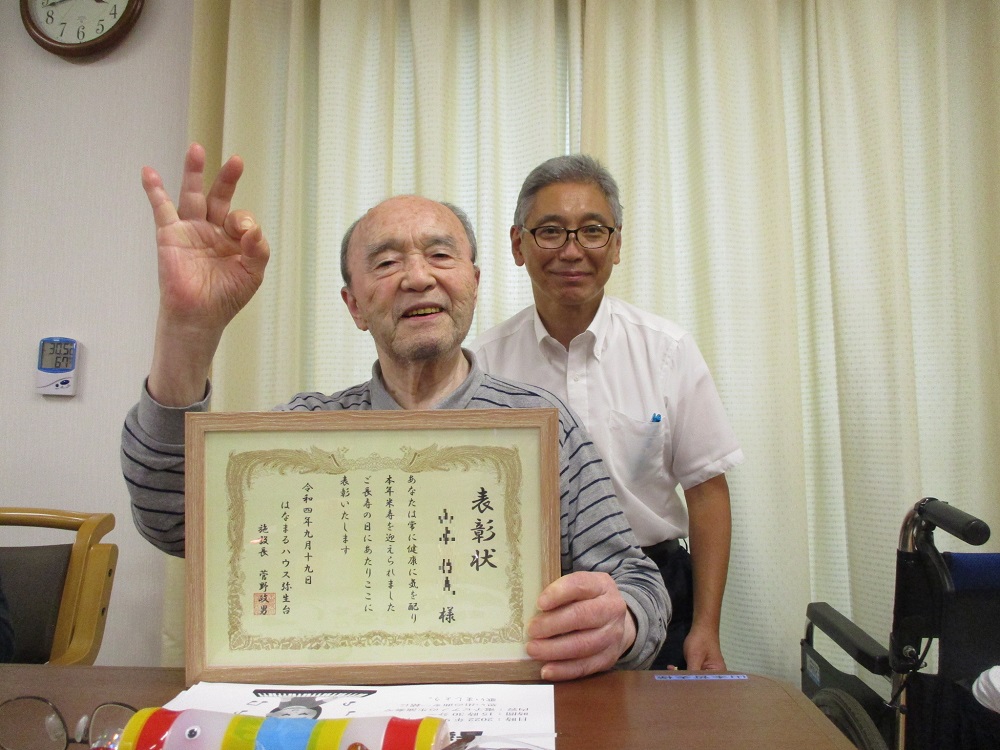 表彰状
様
あなたは常に健康に気を配り
本年米寿を迎えられました
ご長寿の日にあたりここに
表彰いたします
令和四年九月十九日
はなまるハウス弥生台
施設長 菅野政男
30.5
67
8
7
6
5
4